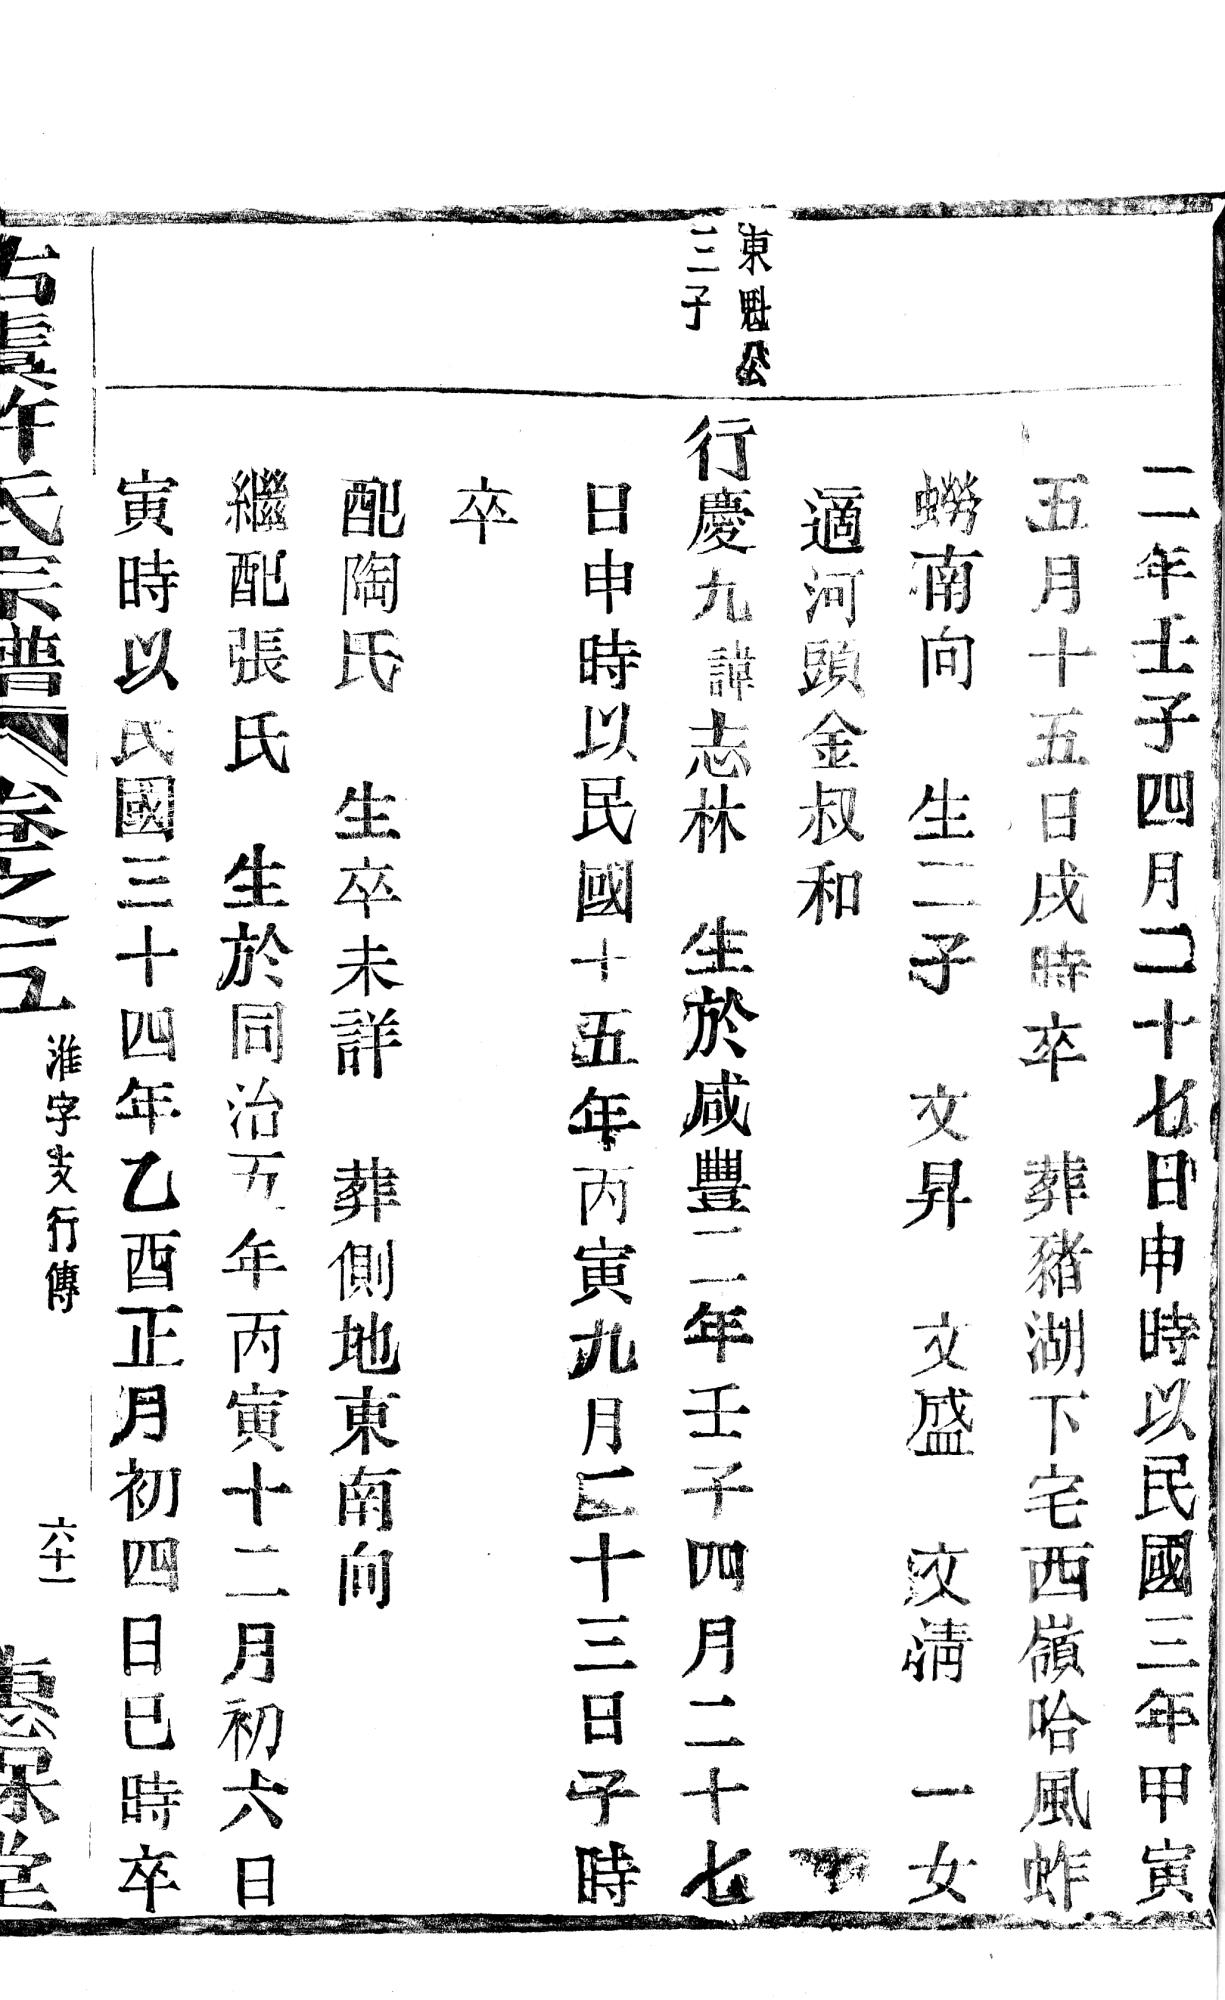 二年壬子四月二十七日申時以民國三年甲寅
五月十五日戌時卒　葬豬湖下宅西嶺哈風蚱
蟧南向　生二子　文昇　文盛　文淸　一女
適河頭金叔和
東魁公
三子
行慶九諱志林　生於咸豐二年壬子四月二十七
日申時以民國十五年丙寅九月二十三日子時
卒
配陶氏　生卒未詳　葬側地東南向
繼配張氏　生於同治五年丙寅十二月初六日
寅時以民國三十四年乙酉正月初四日巳時卒
古虞許氏宗譜　卷之五　淮字支行傳　六十一　惠保堂